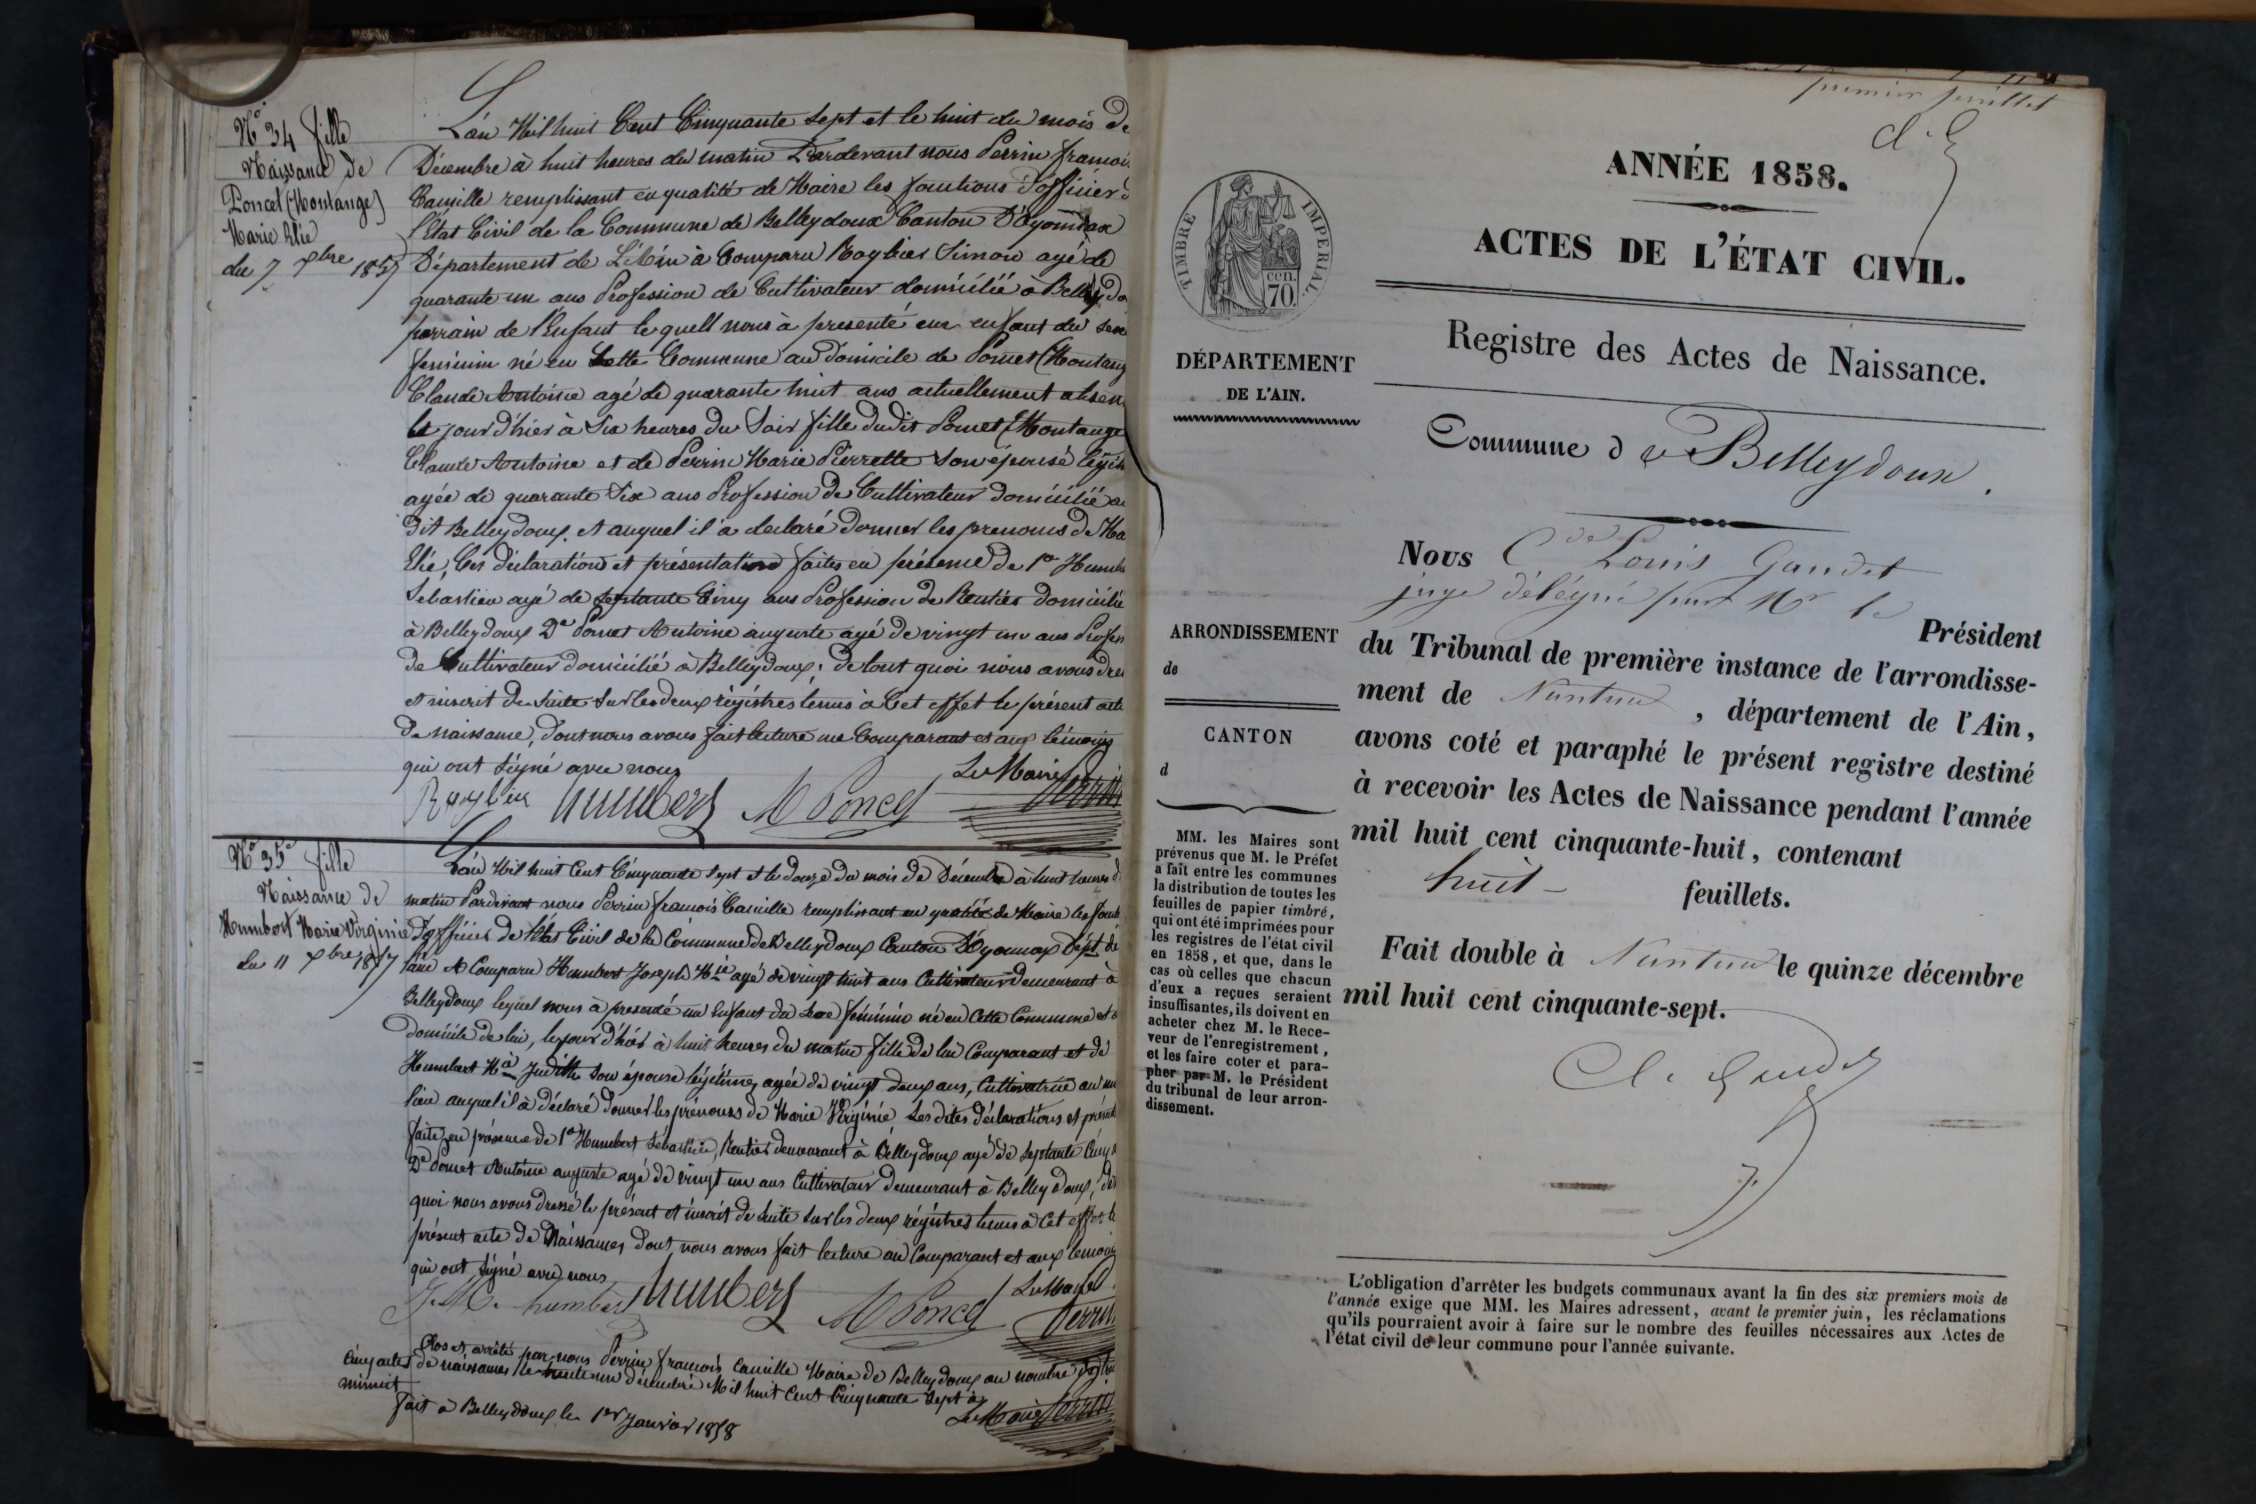 N° 34 fille
Naissance de
Poncet (Montange)
Marie Elié
du 7 Xbre 1857
L'an Mil huit Cent Cinquante Sept et le huit du mois de
Décembre à huit heures du matin Pardevant nous Perrin françois
Camille remplissant en qualité de Maire les fonctions d'officier d
l'Etat Civil de la Commune de Belleydoux Canton D'Oyonnax
Département de L'Ain à Comparu Roybier Simon agé de
quarante un ans Profession de Cultivateur domicilié à Belleydo
parrain de l'Enfant lequell nous à presenté un enfant du sexe
feminin né en Cette Commune au domicile de Poncet (Montang
Claude Antoine agé de quarante huit ans actuellement absen
le jour d'hier à Six heures du Soir fille dudit Poncet (Montange
Claude Antoine et de Perrin Marie Pierrette son épouse légit
agée de quarante Six ans Profession de Cultivateur domicilié au
dit Belleydoux. et auquel il à declaré donner les prenoms de Ma
Elié, Ces déclaration et présentation faites en présence de 1er Humbe
Sébastien agé de septante Cinq ans Profession de Rentier domicilié
à Belleydoux 2e Poncet Antoine auguste agé de vingt un ans Profess
de Cultivateur domicilié à Belleydoux; de tout quoi nous avons dre
et inscrit de Suite Sur les deux régistres tenus à Cet effet le présent acte
de naissance, dont nous avons fait lecture au Comparant et aux témoins
qui ont Signé avec nous
Le Maire
Roybier humbert A Poncet Perrin
N° 35e fille
Naissance de
Humbert Marie Virginie
du 11 Xbre 1857
L'an Mil huit Cent Cinquante Sept et le douze du mois de Décembre à huit heures d
matin Pardevant nous Perrin françois Camille remplissant en qualité de Maire les fonct
D'officier de l'état Civil de la Commune de Belleydoux Canton D'Oyonnax Dépt de
l'ain A Comparu Humbert Joseph Mie agé de vingt huit ans Cultivateur Demeurant à
Belleydoux lequel nous à presenté un Enfant du Sexe féminin né en Cette Commune et a
domicile de lui, le jour d'hier à huit heures du matin fille de lui Comparant et de
Humbert Mie Judith Son épouse légitime, agée de vingt deux ans, Cultivatrice au m
lieu auquel il à déclaré donner les prénoms de Marie Virginie, Les dites déclarations et présent
faites en présence de 1er Humbert Sébastien, Rentier demeurant à Belleydoux agé de Septante Cinq a
2e Poncet Antoine auguste agé de vingt un ans Cultivateur demeurant à Belleydoux, de
quoi nous avons dressé le présent et inscrit de Suite Sur les deux régistres tenus à Cet effet le
présent acte de Naissances dont nous avons fait lecture au Comparant et aux témoins
qui ont Signé avec nous
Le Maire
J. M. humbert humbert A Poncet Perrin
Clos et arrêté par nous Perrin françois Camille Maire de Belleydoux au nombre de trente
Cinq actes de naissances le trente un décembre Mil huit Cent Cinquante Sept à
minuit
fait à Belleydoux le 1er Janvier 1858
Le Maire Perrin
premier feuillet
ANNÉE 1858.
ACTES DE L'ÉTAT CIVIL.
TIMBRE IMPERIAL
70 cen.
Registre des Actes de Naissance.
DÉPARTEMENT
DE L'AIN.
Commune de Belleydoux.
Nous Cde Louis Gaudet
juge délégué par Mr le
Président
ARRONDISSEMENT
de
du Tribunal de première instance de l'arrondisse-
ment de Nantua, département de l'Ain,
CANTON
d
avons coté et paraphé le présent registre destiné
à recevoir les Actes de Naissance pendant l'année
mil huit cent cinquante-huit, contenant
huit feuillets.
MM. les Maires sont
prévenus que M. le Préfet
a fait entre les communes
la distribution de toutes les
feuilles de papier timbré,
qui ont été imprimées pour
les registres de l'état civil
en 1858, et que, dans le
cas où celles que chacun
d'eux a reçues seraient
insuffisantes, ils doivent en
acheter chez M. le Rece-
veur de l'enregistrement,
et les faire coter et para-
pher par M. le Président
du tribunal de leur arron-
dissement.
Fait double à Nantua le quinze décembre
mil huit cent cinquante-sept.
L'obligation d'arrêter les budgets communaux avant la fin des six premiers mois de
l'année exige que MM. les Maires adressent, avant le premier juin, les réclamations
qu'ils pourraient avoir à faire sur le nombre des feuilles nécessaires aux Actes de
l'état civil de leur commune pour l'année suivante.